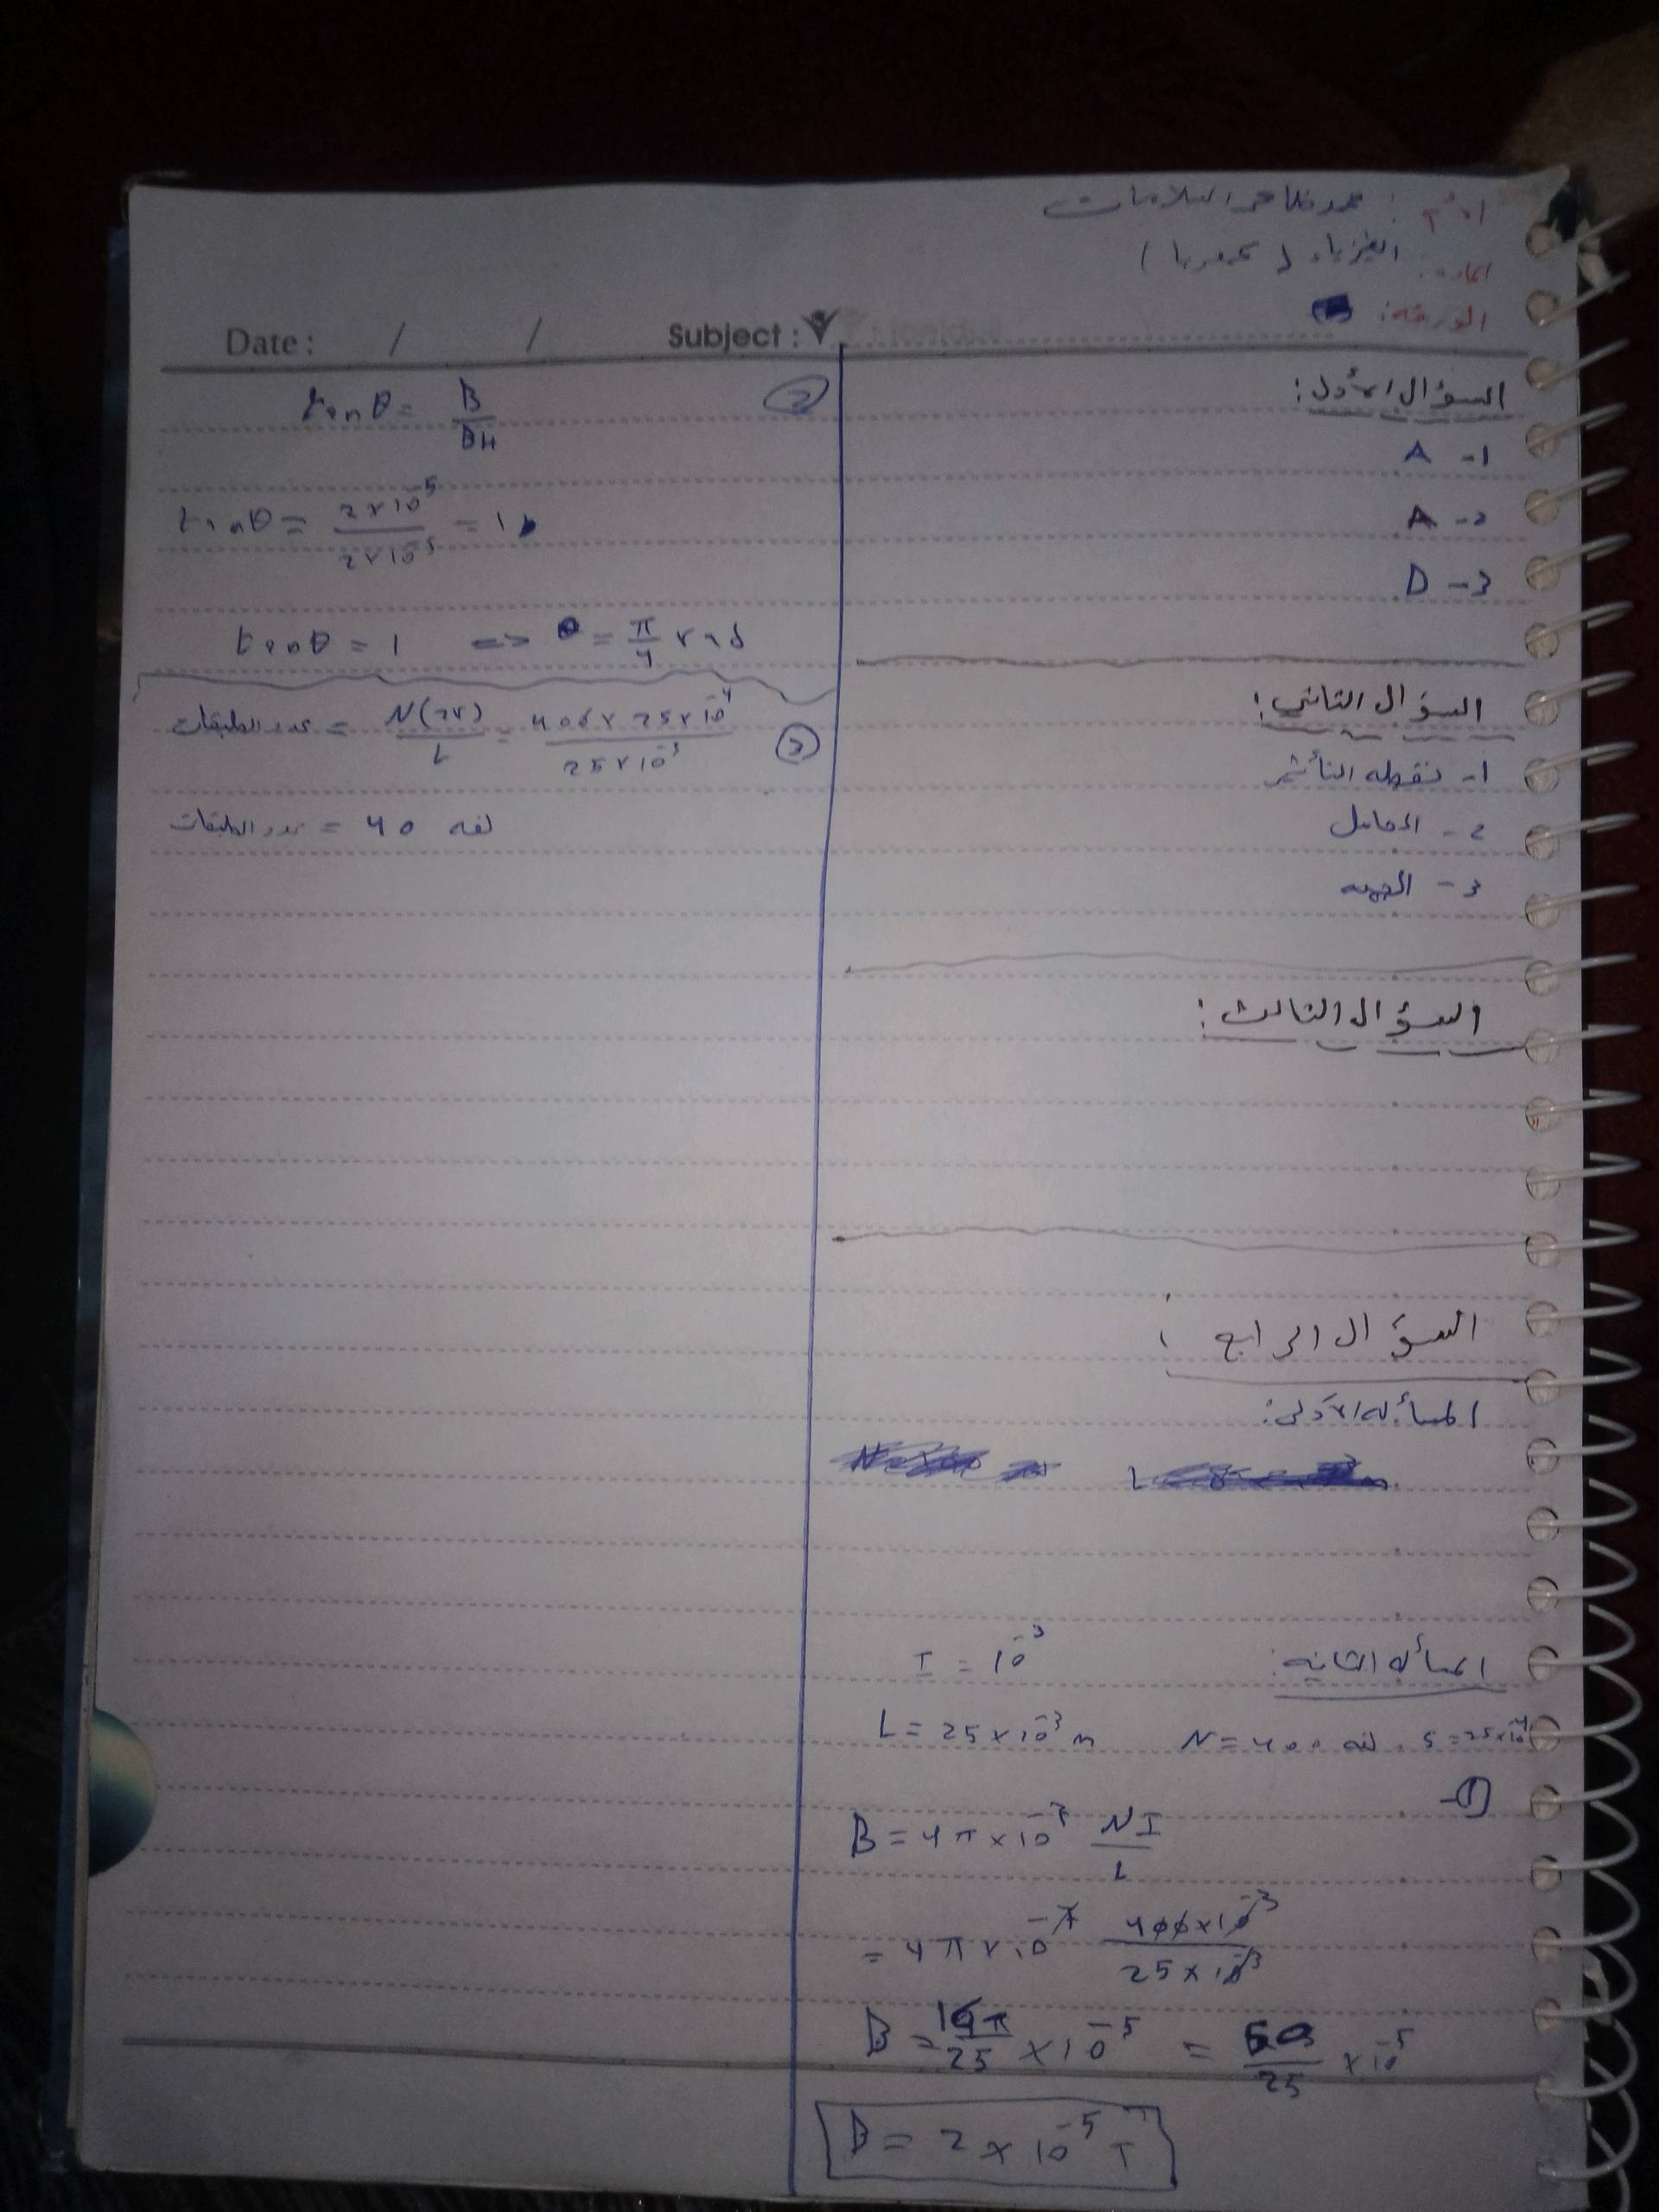 الاسم : محمد ظاهر السلامات
المادة: الفيزياء ( كهربا )
الورقة:
Date: / / Subject:
السؤال الأول:
1- A
2- A
3- D
السؤال الثاني:
1- نقطه التأثير
2- الحامل
3- الجهه
السؤال الثالث:
السؤال الرابع :
المسأله الأولى:
المسأله الثانيه: I = 10⁻³
L = 25 × 10⁻³ m N = 400 لفه . S = 25×10⁻⁴
①-
B = 4π × 10⁻⁷ NI / L
= 4π × 10⁻⁷ 400×10⁻³ / 25 × 10⁻³
B = 16π / 25 × 10⁻⁵ = 50 / 25 × 10⁻⁵
B = 2 × 10⁻⁵ T
② tanθ = B / BH
tanθ = 2×10⁻⁵ / 2×10⁻⁵ = 1
tanθ = 1 => θ = π / 4 rad
③ عدد الطبقات = N(2r) / L = 400 × 25×10⁻⁴ / 25×10⁻³
عدد الطبقات = 40 لفه